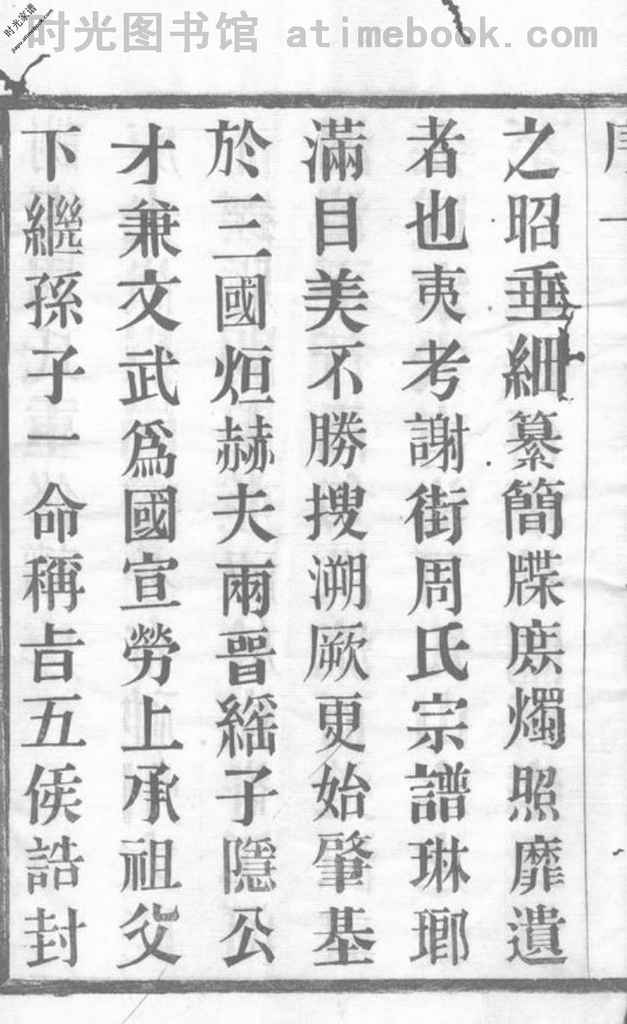 时光图书馆 atimebook.com
时光家谱
之昭垂細纂簡牒庶燭照靡遺
者也夷考謝街周氏宗譜琳瑯
滿目美不勝搜溯厥更始肇基
於三國烜赫夫兩晋繇子隱公
才兼文武爲國宣勞上承祖父
下繼孫子一命稱旹五侯誥封